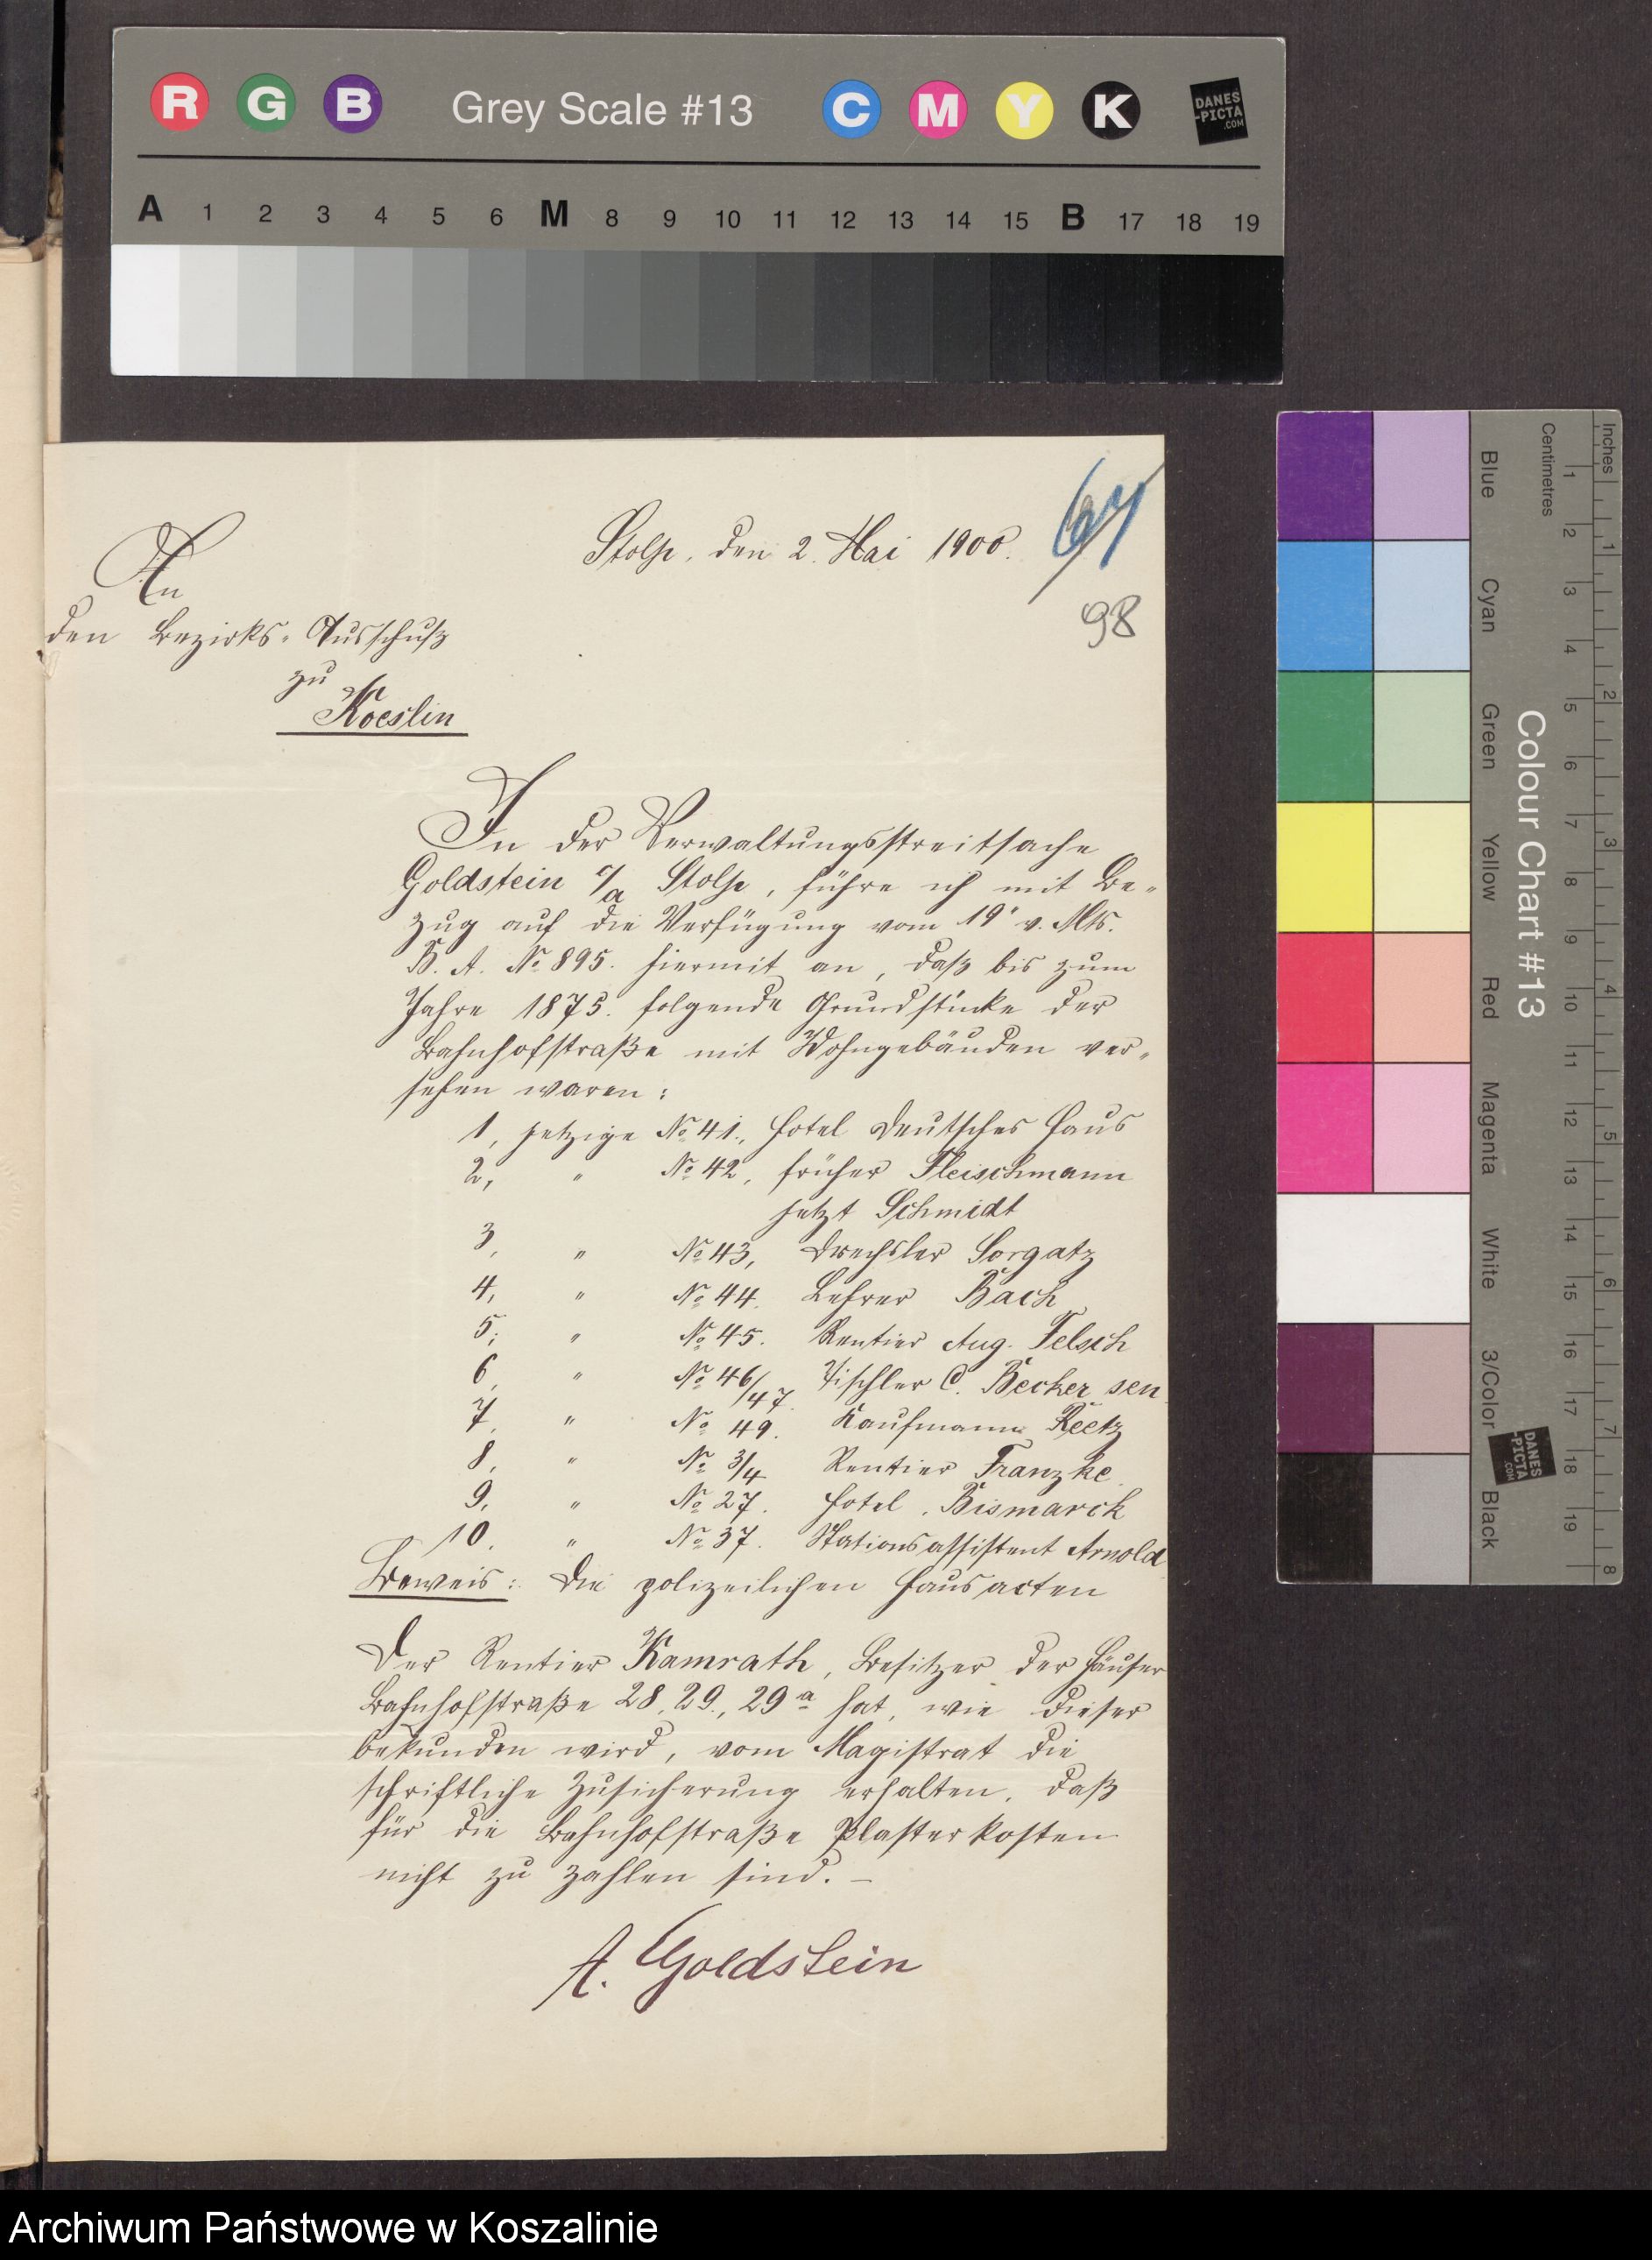 R G B Grey Scale #13 C M Y K DANES-PICTA.COM
A 1 2 3 4 5 6 M 8 9 10 11 12 13 14 15 B 17 18 19
Stolp, den 2. Mai 1900.
67
98
An
den Bezirks-Ausschuß
zu
Koeslin
In der Verwaltungsstreitsache
Goldstein c/a Stolp, führe ich mit Be-
zug auf die Verfügung vom 19. v. Mts.
B. A. No 895. hiermit an, daß bis zum
Jahre 1875. folgende Grundstücke der
Bahnhofstraße mit Wohngebäuden ver-
sehen waren:
1, jetzige No 41., Hotel Deutsches Haus
2, " No 42, früher Fleischmann
jetzt Schmidt
3, " No 43, Drechsler Sorgatz
4, " No 44. Lehrer Bach
5, " No 45. Rentier Aug. Felsch
6, " No 46/47. Tischler C. Becker sen
7, " No 49. Kaufmann Reetz
8, " No 3/4 Rentier Franzke
9, " No 27. Hotel Bismarck
10. " No 37. Stationsassistent Arnold
Beweis: Die polizeilichen Hausacten
Der Rentier Kamrath, Besitzer der Häuser
Bahnhofstraße 28, 29., 29a hat, wie dieser
bekunden wird, vom Magistrat die
schriftliche Zusicherung erhalten, daß
für die Bahnhofstraße Plasterkosten
nicht zu zahlen sind. –
A. Goldstein
Colour Chart #13
Blue Cyan Green Yellow Red Magenta White 3/Color Black
Centimetres 1 2 3 4 5 6 7 8 9 10 11 12 13 14 15 16 17 18 19
Inches 1 2 3 4 5 6 7 8
DANES-PICTA.COM
Archiwum Państwowe w Koszalinie